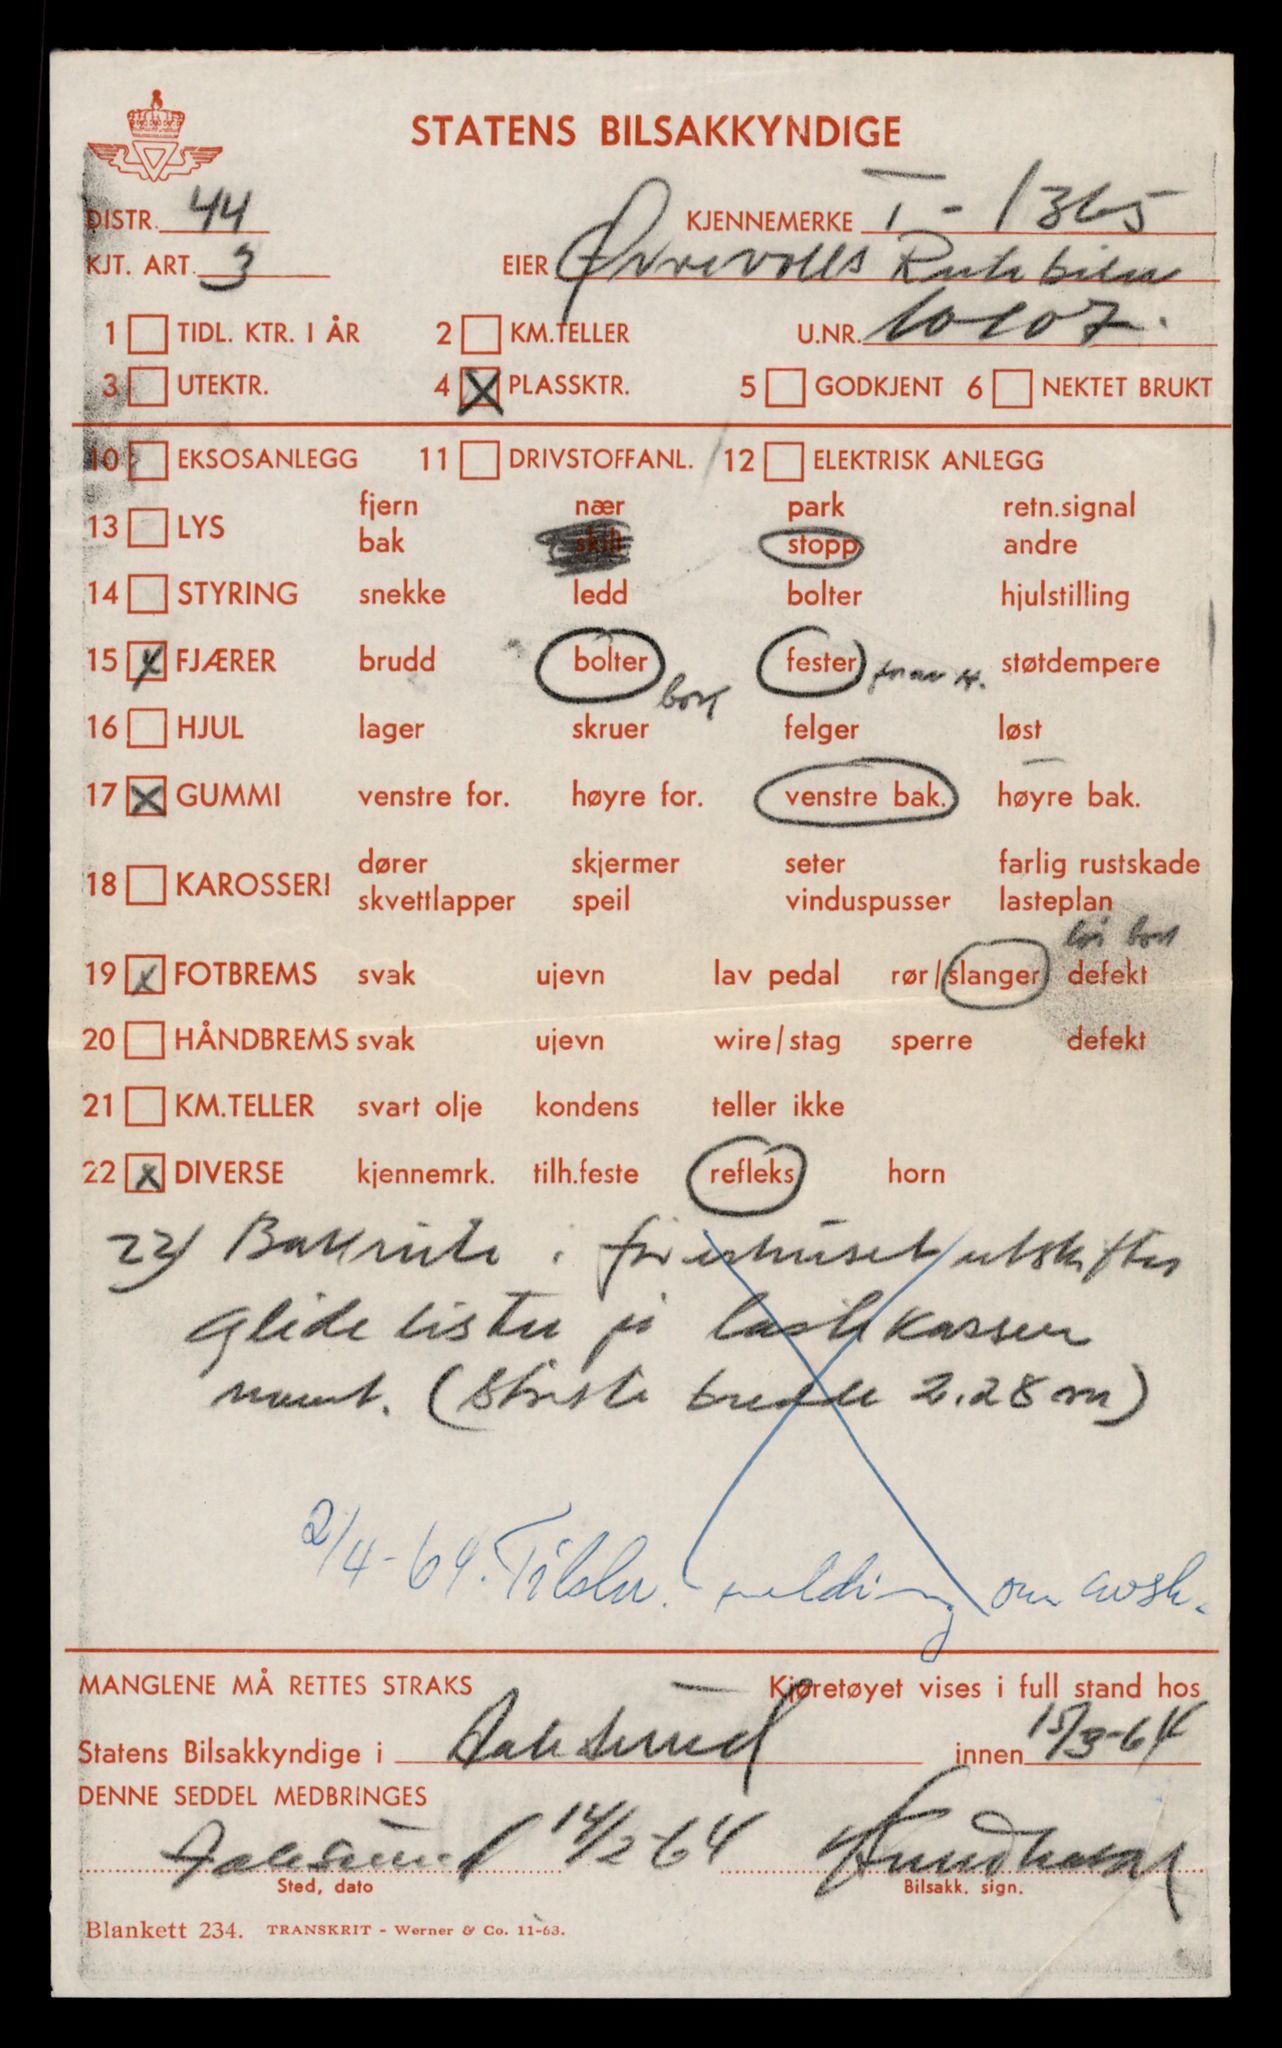 STATENS BILSAKKYNDIGE
DISTR. 44 KJENNEMERKE T-1365
KJT. ART. 3 EIER Ørrevolls Rutebiler
1 TIDL. KTR. I ÅR 2 KM.TELLER U.NR. 10107.
3 UTEKTR. 4 X PLASSKTR. 5 GODKJENT 6 NEKTET BRUKT
10 EKSOSANLEGG 11 DRIVSTOFFANL. 12 ELEKTRISK ANLEGG
fjern nær park retn.signal
13 LYS
bak skilt stopp andre
14 STYRING snekke ledd bolter hjulstilling
15 X FJÆRER brudd bolter fester støtdempere
16 HJUL lager skruer felger løst
17 X GUMMI venstre for. høyre for. venstre bak. høyre bak.
dører skjermer seter farlig rustskade
18 KAROSSERI
skvettlapper speil vinduspusser lasteplan
19 X FOTBREMS svak ujevn lav pedal rør/slanger defekt
20 HÅNDBREMS svak ujevn wire/stag sperre defekt
21 KM.TELLER svart olje kondens teller ikke
22 X DIVERSE kjennemrk. tilh.feste refleks horn
22) Bakrute i førerhuset utskiftes
Glidelister på lastekassen
mont. (Største bredde 2.28 m)
2/4-64. Tilskr. melding om avsk.
MANGLENE MÅ RETTES STRAKS Kjøretøyet vises i full stand hos
Statens Bilsakkyndige i Aalesund innen 15/3-64
DENNE SEDDEL MEDBRINGES
Aalesund 14/2-64
Sted, dato Bilsakk. sign.
Blankett 234. TRANSKRIT - Werner & Co. 11-63.